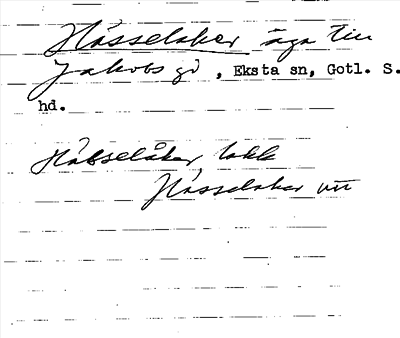 Hässelåker äga till
Jakobs gd, Eksta sn, Gotl. S.
hd.
Hässelåker
Hässelåker